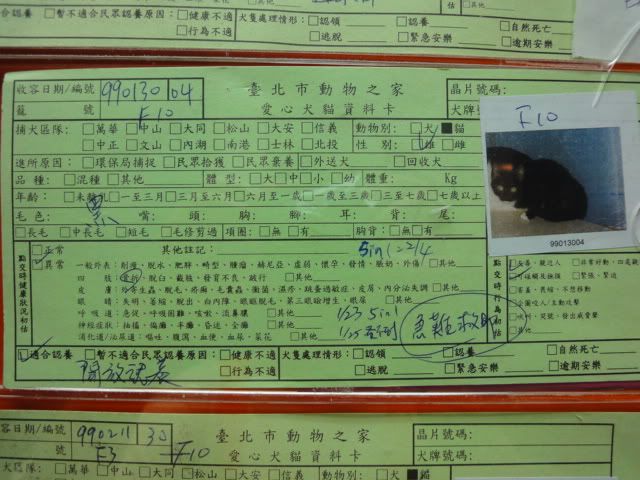 □暫不適合民眾認養原因：□健康不適 犬隻處理情形：□認領 □認養 □自然死亡
□行為不適 □逃脫 □緊急安樂 □逾期安樂
收容日期/編號 990130 04 臺北市動物之家 晶片號碼：
籠 號 F10 愛心犬貓資料卡 犬牌號
捕犬區隊：□萬華□中山□大同□松山□大安□信義 動物別：□犬■貓
□中正□文山□內湖□南港□士林□北投 性 別：□雄□雌
進所原因：□環保局捕捉□民眾拾獲□民眾棄養□外送犬 □回收犬
品 種：□混種□其他 體 型：□大□中□小□幼 體重： Kg
年齡：□未離乳□一至三月□三月至六月□六月至一歲□一歲至三歲□三至七歲□七歲以上
毛色：黑 嘴： 頭： 腳： 耳： 背： 尾：
□長毛□中長毛□短毛□毛修剪過 項圈：□無□有 胸背：□無□有
F10
99013004
點交時健康狀況初估
□正常 其他註記： 5in1 2/4
□異常 一般外表：削瘦、脫水、肥胖、畸型、腫瘤、赫尼亞、虛弱、懷孕、發情、脹奶、外傷□其他
四 肢：骨折、脫臼、截肢、發育不良、跛行 □其他
皮 膚：外寄生蟲、脫毛、疥癬、毛囊蟲、黴菌、濕疹、跳蚤過敏症、皮屑、內分泌失調□其他
眼 睛：失明、萎縮、脫出、白內障、眼瞼脫毛、第三眼瞼增生、眼屎 □其他
呼 吸 道：急促、困難、咳嗽、流鼻膿 □其他
神經症狀：抽搐、偏癱、半癱、昏迷、全癱 □其他
消化道/泌尿道：嘔吐、腹瀉、血便、血尿、菜花 □其他
1/23 5in1
急難救助
點交時行為初估
□友善、親近人 □非常好動、四處觀
□緊張、緊迫
□害羞、畏縮、不想移動
□企圖咬人/主動攻擊
□吠叫、哭號、發出威脅聲
□其他
□適合認養 □暫不適合民眾認養原因：□健康不適 犬隻處理情形：□認領 □認養 □自然死亡
開放認養 □行為不適 □逃脫 □緊急安樂 □逾期安樂
容日期/編號 990211 30 臺北市動物之家 晶片號碼：
號 F3 F10 愛心犬貓資料卡 犬牌號碼：
犬區隊：□萬華□中山□大同□松山□大安□信義 動物別：□犬■貓